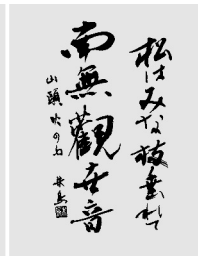 松はみな枝垂れて
南無觀世音
山頭火の句